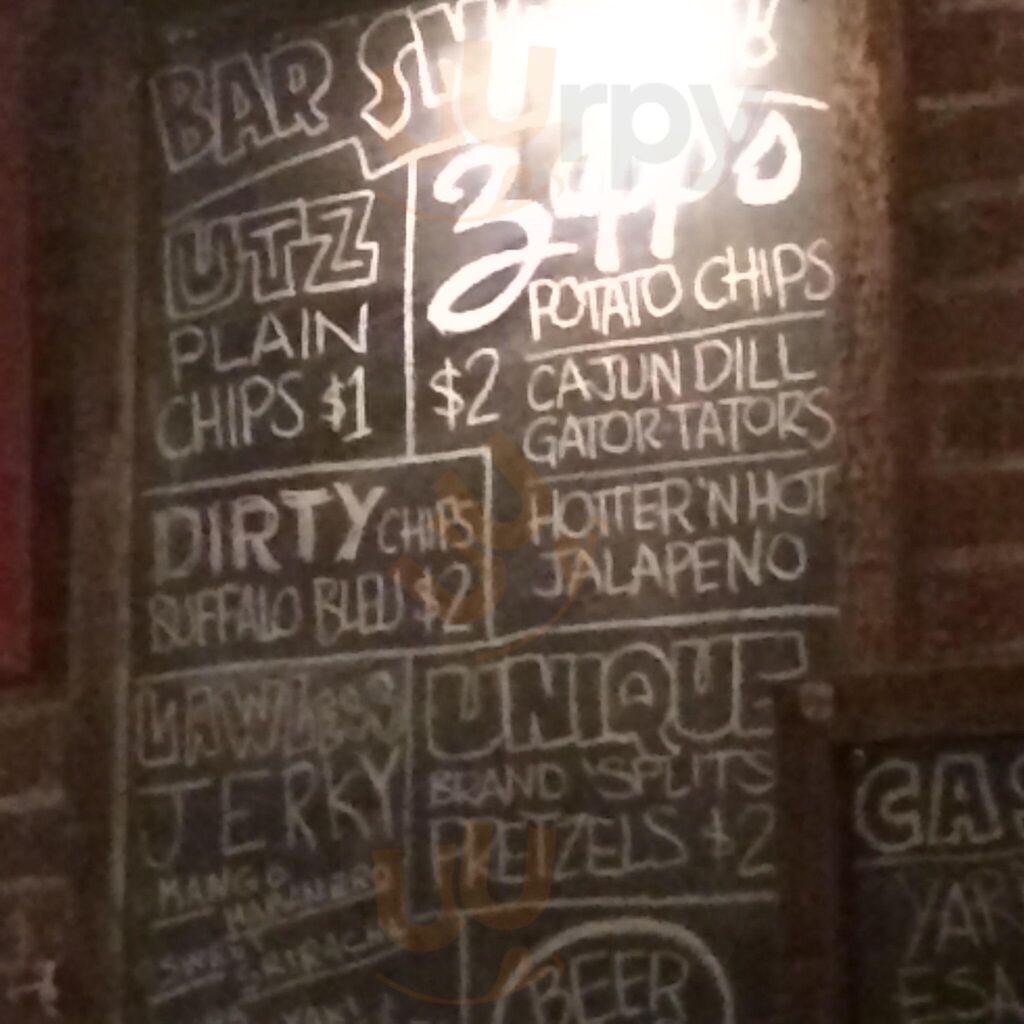 BAR
UTZ
PLAIN
CHIPS $1
Zapp's
POTATO CHIPS
$2
CAJUN DILL
GATOR-TATORS
HOTTER 'N HOT
JALAPENO
DIRTY CHIPS
BUFFALO BLEU $2
LAWLESS
JERKY
MANGO
HABANERO
SWEET
SRIRACHA
UNIQUE
BRAND 'SPLITS
PRETZELS $2
BEER
CAS
YAR
ESA
urpy